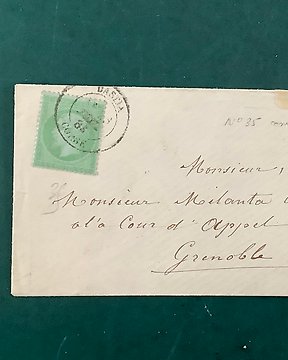 BASTIA
63
CORSE
N° 35
Monsieur,
Monsieur Milanta
à la Cour d'Appel
Grenoble